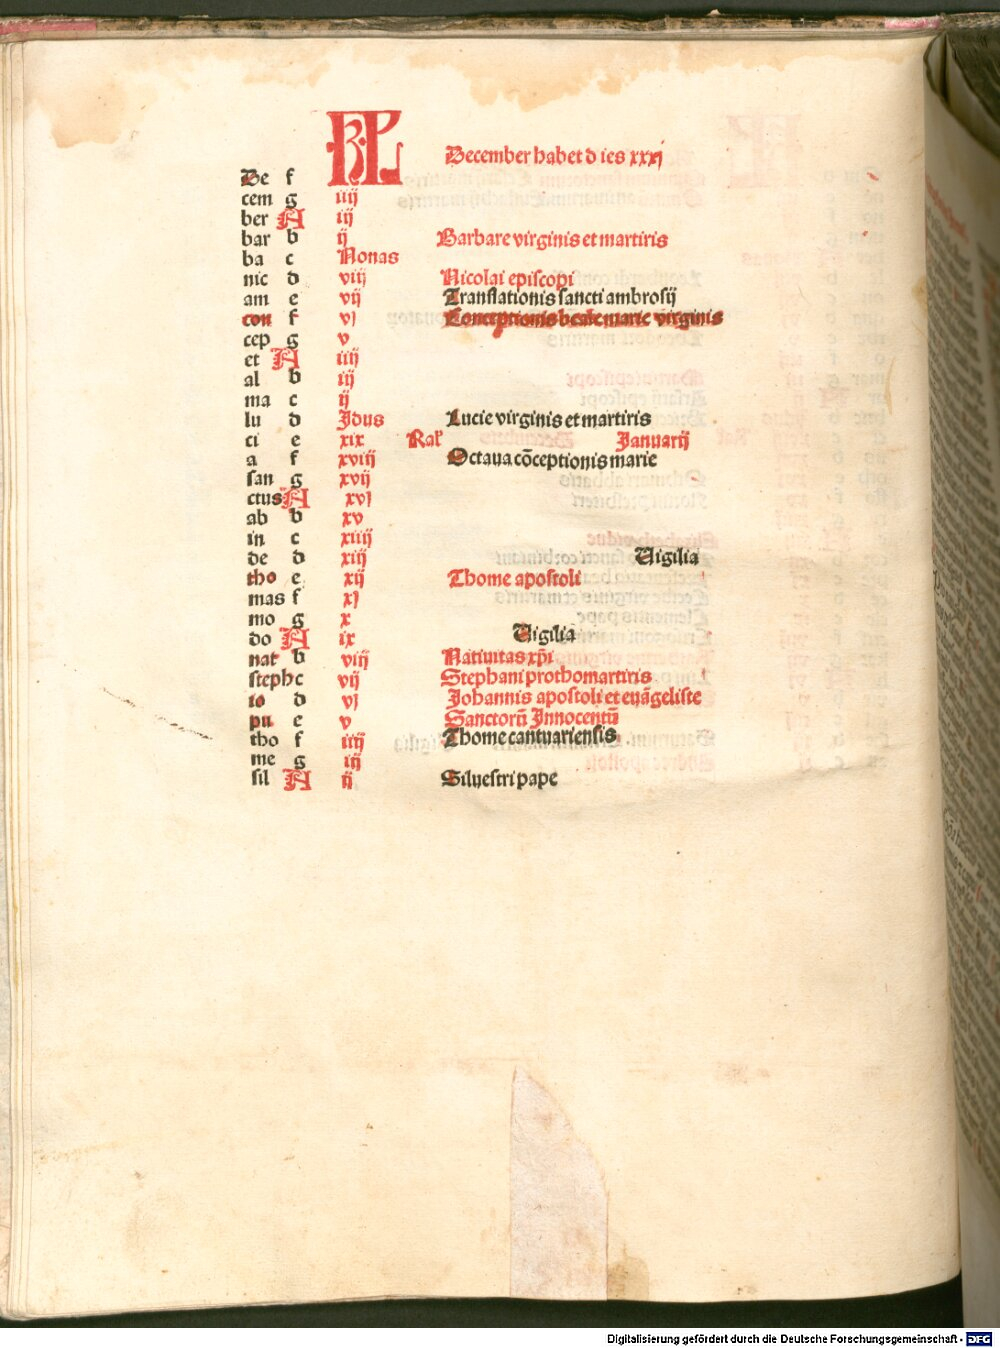 KL December habet dies xxxj
De f
cem g iiij
ber A iij
bar b ij Barbare virginis et martiris
ba c Nonas
nic d viij Nicolai episcopi
am e vij Translationis sancti ambrosij
con f vj Conceptionis beate marie virginis
cep g v
et A iiij
al b iij
ma c ij
lu d Jdus Lucie virginis et martiris
ci e xix Kal' Januarij
a f xviij Octaua cōceptionis marie
san g xvij
ctus A xvj
ab b xv
in c xiiij
de d xiij Uigilia
tho e xij Thome apostoli
mas f xj
mo g x
do A ix Uigilia
nat b viij Natiuitas xp̄i
steph c vij Stephani prothomartiris
io d vj Johannis apostoli et euāgeliste
pu e v Sanctorū Jnnocentū
tho f iiij Thome cantuariensis.
me g iij
sil A ij Siluestri pape
Digitalisierung gefördert durch die Deutsche Forschungsgemeinschaft - DFG